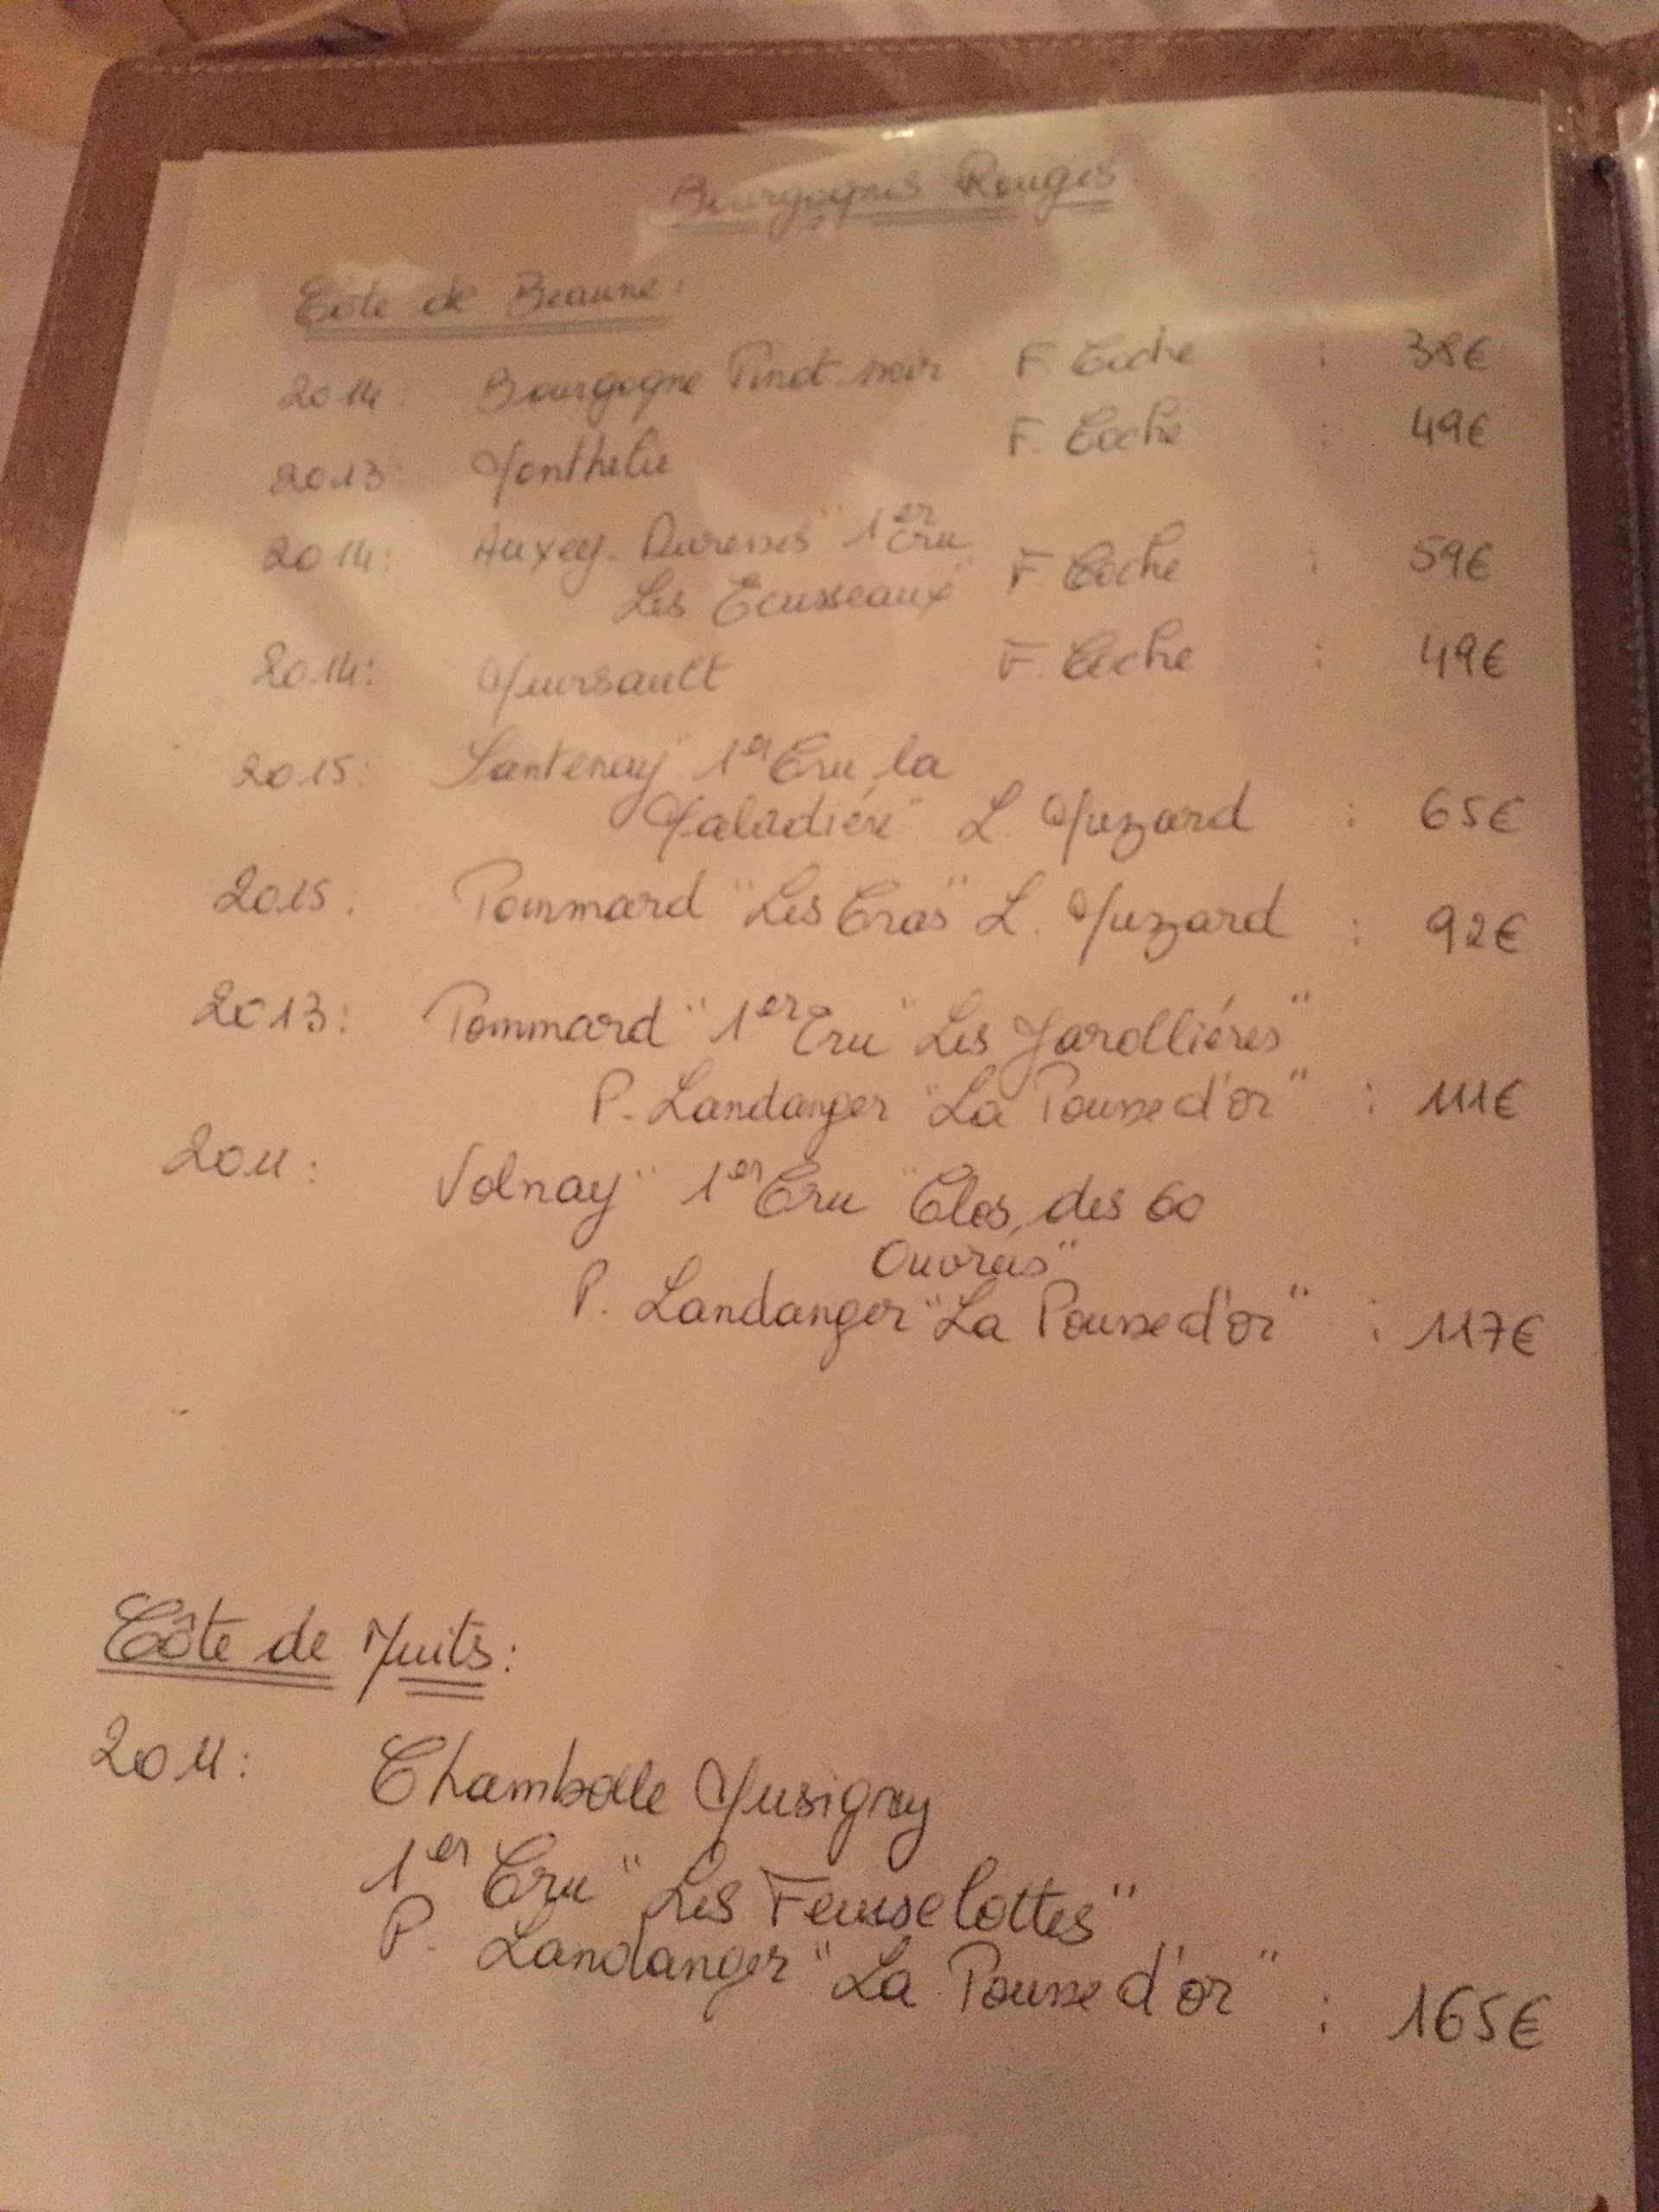 Bourgognes Rouges
Côte de Beaune:
2014: Bourgogne Pinot noir F. Coche : 38€
2013: Monthelie F. Coche : 49€
2014: Auxey-Duresses" 1er Cru
Les Ecusseaux" F. Coche : 59€
2014: Meursault F. Coche : 49€
2015: Santenay" 1er Cru, la
Maladière" L. Muzard : 65€
2015: Pommard "Les Cras" L. Muzard : 92€
2013: Pommard" 1er Cru "Les Jarollières"
P. Landanger "La Pousse d'or" : 111€
2011: Volnay" 1er Cru "Clos, des 60
Ouvrées"
P. Landanger "La Pousse d'or" : 117€
Côte de Nuits:
2011: Chambolle Musigny
1er Cru "Les Feusselottes"
P. Landanger "La Pousse d'or" : 165€